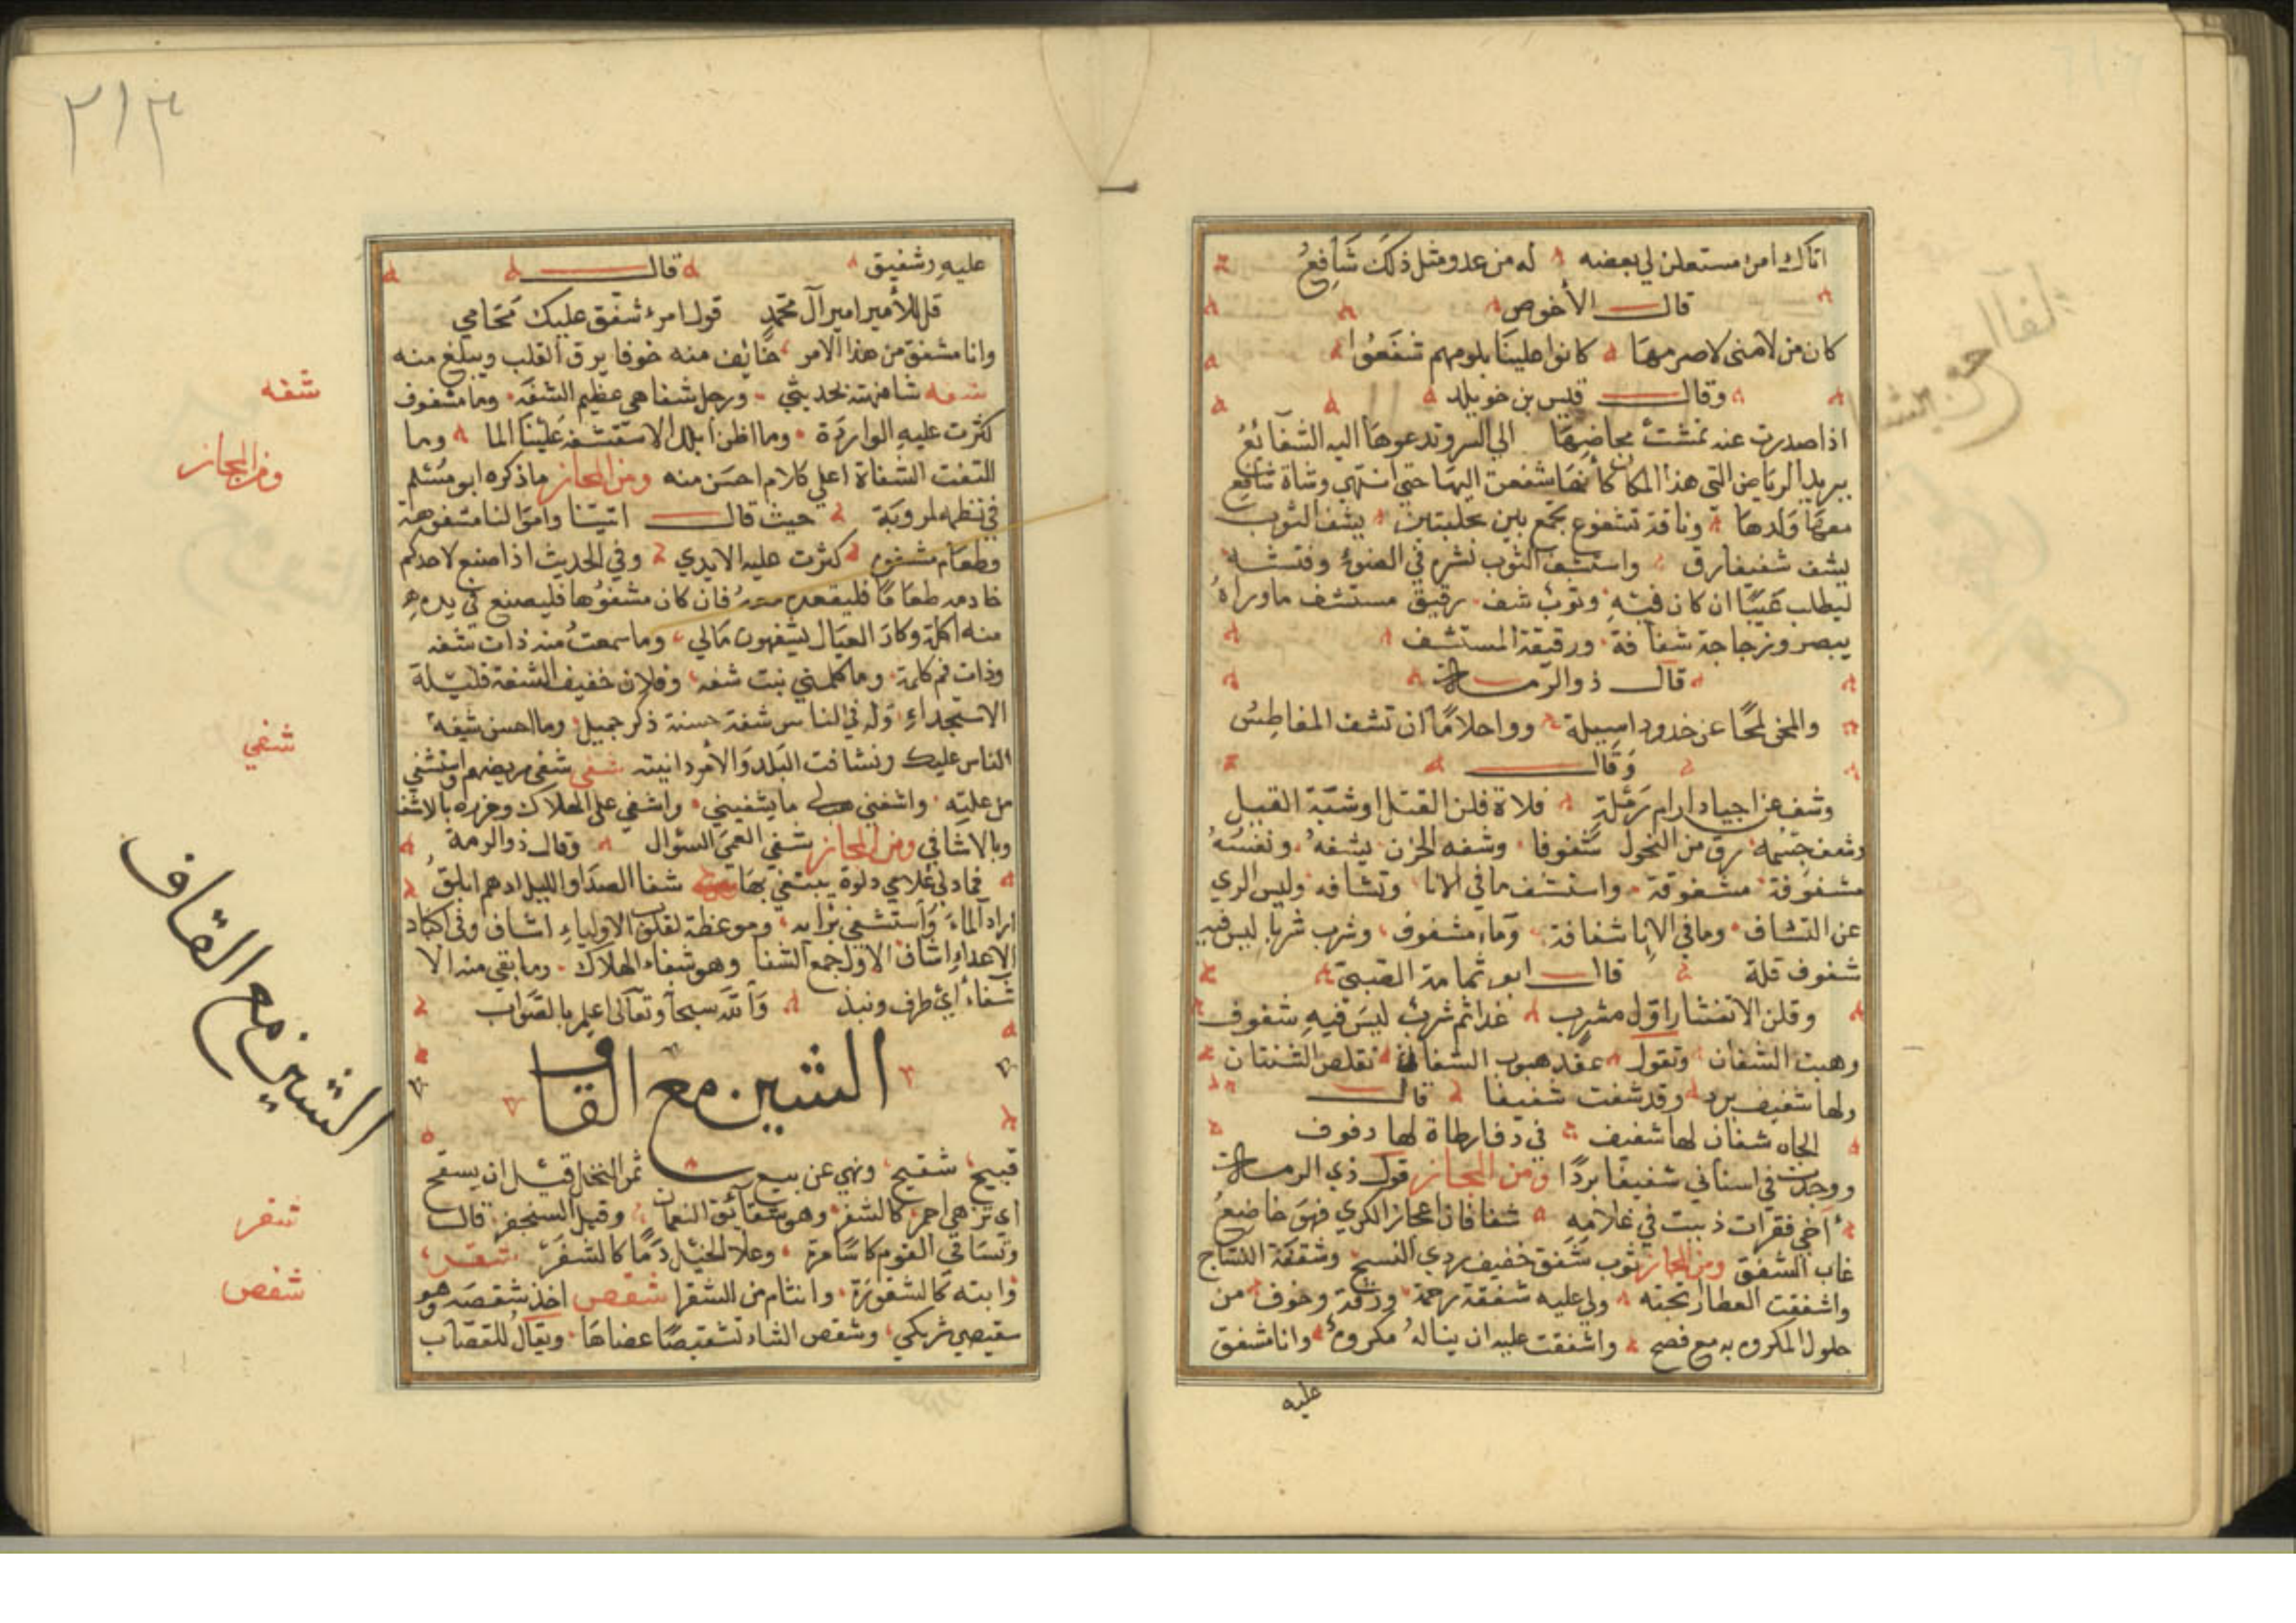 اتاك امرء مستعلن لي بعضه له من عدو مثل ذلك شافع
قال الأخوص
كان من لامنى لاصرمها كانوا علينا بلومهم شفعوا
وقال قيس بن خويلد
اذا صدرت عنه تمشت مخاضها الي السر وتدعوها اليه الشفائع
يريد الرياض التي هذا المكان كأنها شفعت اليها حتي اشتهي وشاة شافع
معها ولدها وناقة تشفوع تجمع بين محلبتين شف الثوب
يشف شفيفا رق واستشف الثوب نشره في الضوء وفتشه
ليطلب عيبا ان كان فيه وثوب شف رقيق مستشف ما وراه
يبصر وزجاجة شفافة ورقيقة المستشف
قال ذو الرمة
والمخى لمحا عن خدود اسيلة رووا حلاما ان تشف المغاطس
وقال
وشف عن اجياد ارام رملة فلاة فلن القتل او شبة القبيل
وشف جسمه رق من النحول شفوفا وشفه الحزن يشفه ونفسه
مشفوفة واستشف ما في الانا وتشافه وليس الري
عن التشاف وما في الانا شفافة وماء مشفوف وشرب شربا ليس فيه
شفوف قلة قال ابو ثمامة الضبي
وقلن الا تفشا راول مشرب غدا ثم شرب ليس فيه شفوف
وهبت الشفان وتقول عند هبوب الشفان تقلص الشفتان
ولها شفيف برد وقد شفت شفيفا قال
الجاه شفان لها شفيف في دف ارطاة لها دفوف
ووجدت في اسناني شفيفا بردا ومن المجاز قول ذي الرمة
أخي فقرات ذببت في غلامه شفافات اعجاز الكري فهو خاضع
غاب الشفق ومن المجاز ثوب شفق خفيف ردي النسج وشفقة النساج
واشفقت العطار تجبنه ولي عليه شفقة رحمة ورقة وخوف من
حلول المكروه به مع نصح واشفقت عليه ان يناله مكروه وانا شفق
عليه
٢١٣
عليه وشفيق قال
قل للأمير امير آل محمد قول امرء شفق عليك محامي
وانا مشفق من هذا الامر خايف منه خوفا يرق القلب ويبلغ منه
شفه شافهته بحديثي ورجل شفاهي عظيم الشفه وما مشفوف
كثرت عليه الواردة وما اظن ابلك الا ستشفه علينا الما وما
التفت الشفاة اعلي كلام احسن منه ومن المجاز ما ذكره ابو مسلم
في نظمه لروبة حيث قال اتيتنا واموالنا مشفوهة
وطعام مشفوه كثرت عليه الايدي وفي الحديث اذا صنع لاحدكم
خادمه طعاما فليقعده معه فان كان مشفوها فليصنع في يده
منه اكلة وكاد العيال يشفهون مالي وما سمعت منه ذات شفه
وذات فم كلمة وما كلمني بنت شفه وفلان خفيف الشفة قليلة
الاستجداء وله في الناس شفة حسنة ذكر جميل وما احسن شفة
الناس عليك وتشافت البلد والامر دانيته شفى شفى مريضهم واشتفي
من علته واشفني ما يشفيني واشفي على الهلاك وخرزه بالاشفا
وبالاشافي ومن المجاز شفى العمي السؤال وقال ذو الرمة
فادلي غلامي دلوه يبتغي بها شفا الصدا والليل ادهم ابلق
اراد الماء واستشفي برايه وموعظة لقلوب الاولياء اشاف وفى اكباد
الاعداء اشاف الاول جمع الشفا وهو شفاء الهلاك وما بقى منه الا
شفاء أي طرف ونبذ والله سبحا وتعالى اعلم بالصواب
الشين مع القاف
قبيح شقيح ونهي عن بيع ثمر النخل قبل ان يشقح
أي يزهي احمر كالشقر وهو شقائق النعمان وقيل السنجفر قال
وتساقي القوم كاسا مرة وعلا الخيل دما كالشقر شقر
وابثه كالشقورة وانثام من الشقرا شقص اخذ شقصه وهو
شقيصي شريكي وشقص الشاة تشقيصا عضاها ويقال للقصاب
شفه
ومن المجاز
شفي
الشين مع القاف
شقر
شقص